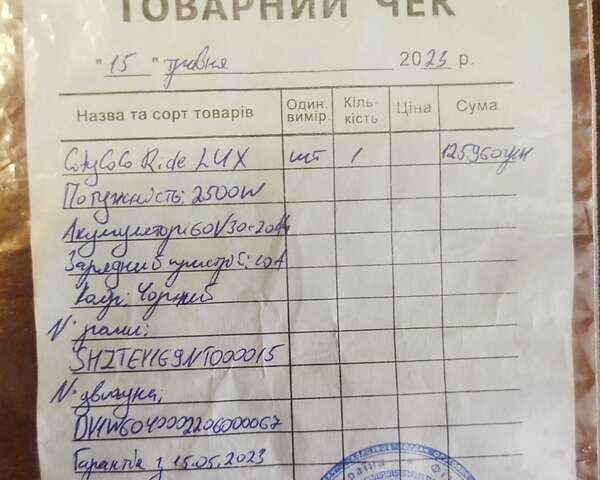 ТОВАРНИЙ ЧЕК
"15" травня 2023 р.
Назва та сорт товарів Один. вимір. Кіль- кість Ціна Сума
CityCoCo Ride LUX шт 1 125960грн
Потужність: 2500W
Акумулятори 60V/30+20Ah
Зарядний пристрої: 10А
Колір: Чорний
N° рами:
SHZTEY169NT000015
N° двигуна;
DV1W6040002206000067
Гарантія з 15.05.2023